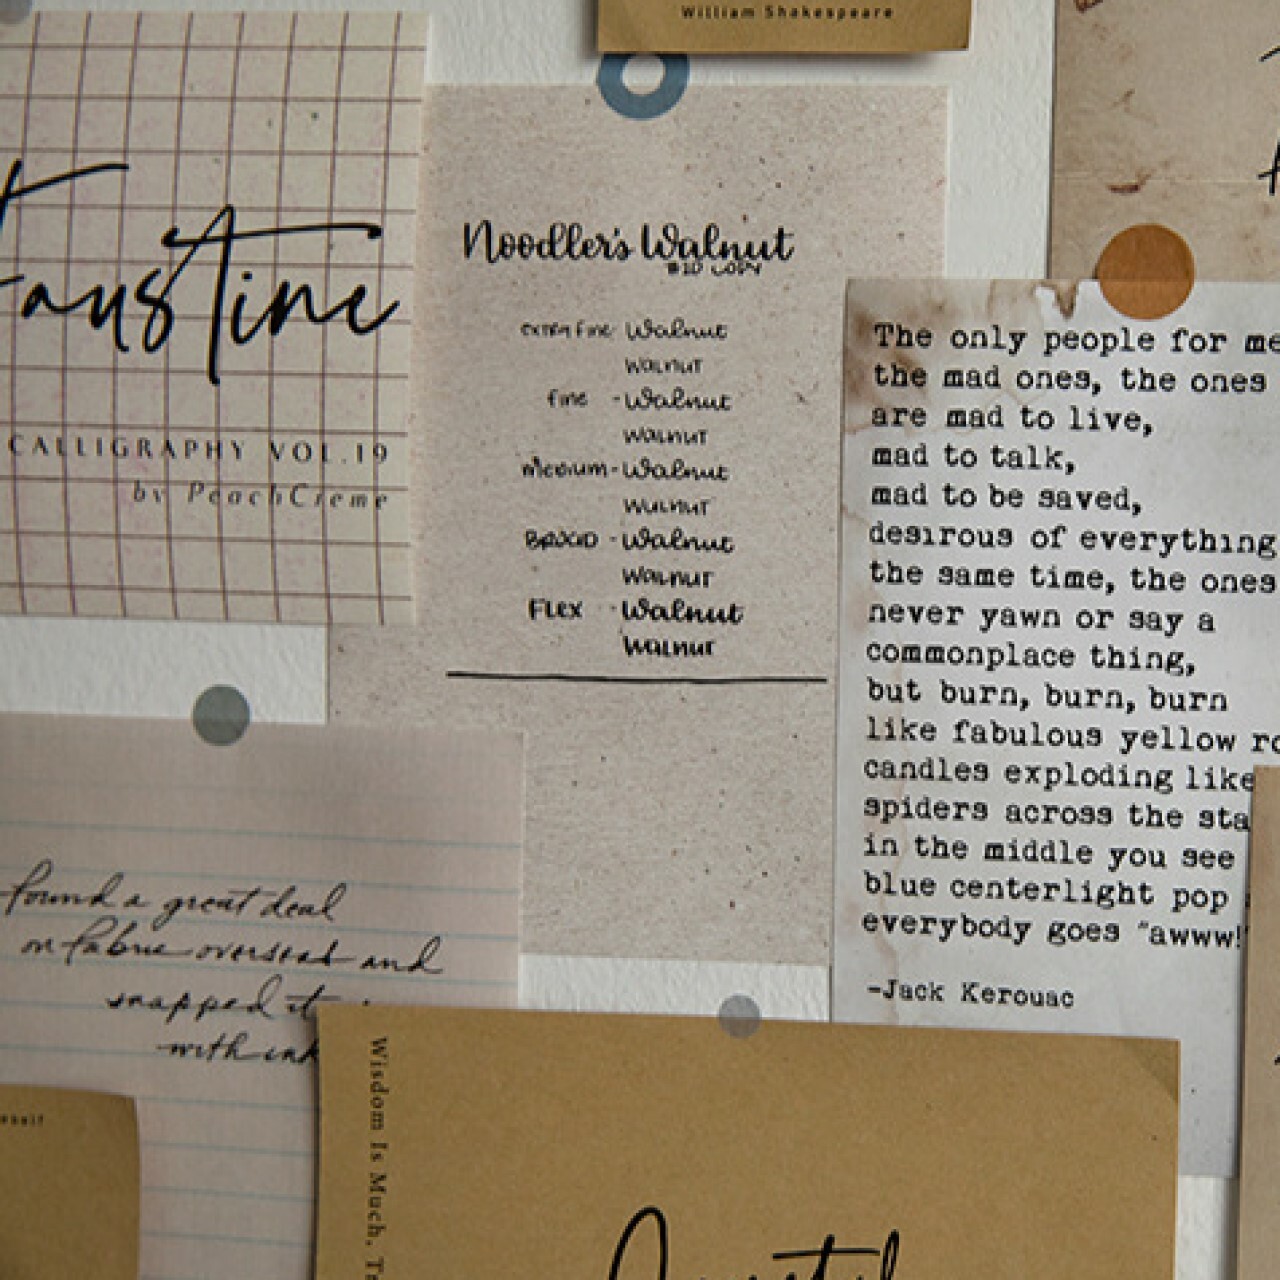 William Shakespeare
Faustine
CALLIGRAPHY VOL.19
by PeachCreme
Noodler's Walnut
#20 COPY
extra fine Walnut
WALNUT
fine - Walnut
WALNUT
medium - Walnut
WALNUT
BROAD - Walnut
WALNUT
FLEX - Walnut
WALNUT
The only people for me
the mad ones, the ones
are mad to live,
mad to talk,
mad to be saved,
desirous of everything
the same time, the ones
never yawn or say a
commonplace thing,
but burn, burn, burn
like fabulous yellow ro
candles exploding like
spiders across the sta
in the middle you see
blue centerlight pop
everybody goes "awww!"
-Jack Kerouac
found a great deal
on fabric overseas and
snapped it
with ink
Wisdom Is Much,